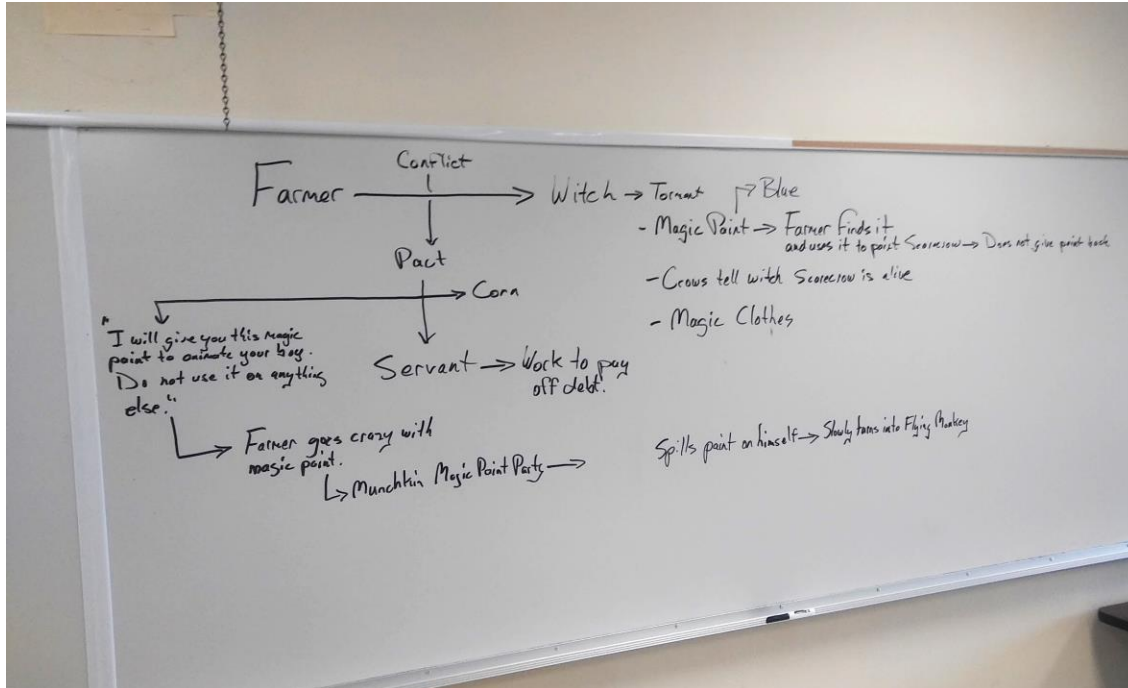 Conflict
Farmer → Witch → Torment
→ Blue
- Magic Paint → Farmer finds it
and uses it to paint Scarecrow → Does not give paint back
Pact
- Crows tell witch Scarecrow is alive
→ Corn
- Magic Clothes
"I will give you this magic
paint to animate your boy.
Do not use it on anything
else."
Servant → Work to pay
off debt.
→ Farmer goes crazy with
magic paint.
↳ Munchkin Magic Paint Party →
Spills paint on himself → Slowly turns into Flying Monkey